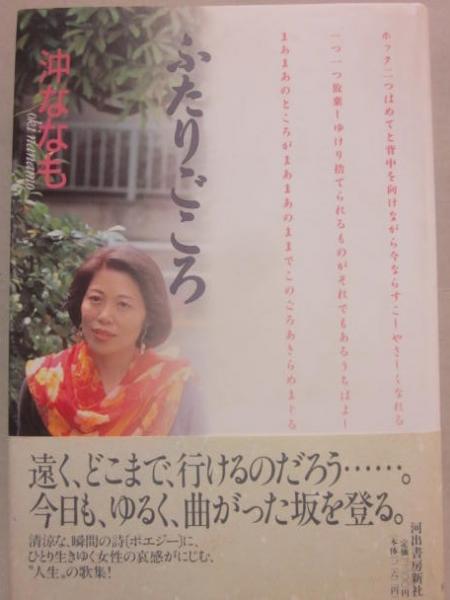 ホック二つはめてと背中を向けながら今ならすこしやさしくなれる
一つ一つ放棄しゆけり捨てられるものがそれでもあるうちはよし
まあまあのところがまあまあのままでこのごろあきらめまじる
ふたりごころ
沖ななも
oki nanamo
遠く、どこまで、行けるのだろう……。
今日も、ゆるく、曲がった坂を登る。
清涼な、瞬間の詩(ポエジー)に、
ひとり生きゆく女性の哀感がにじむ、
"人生"の歌集!
河出書房新社